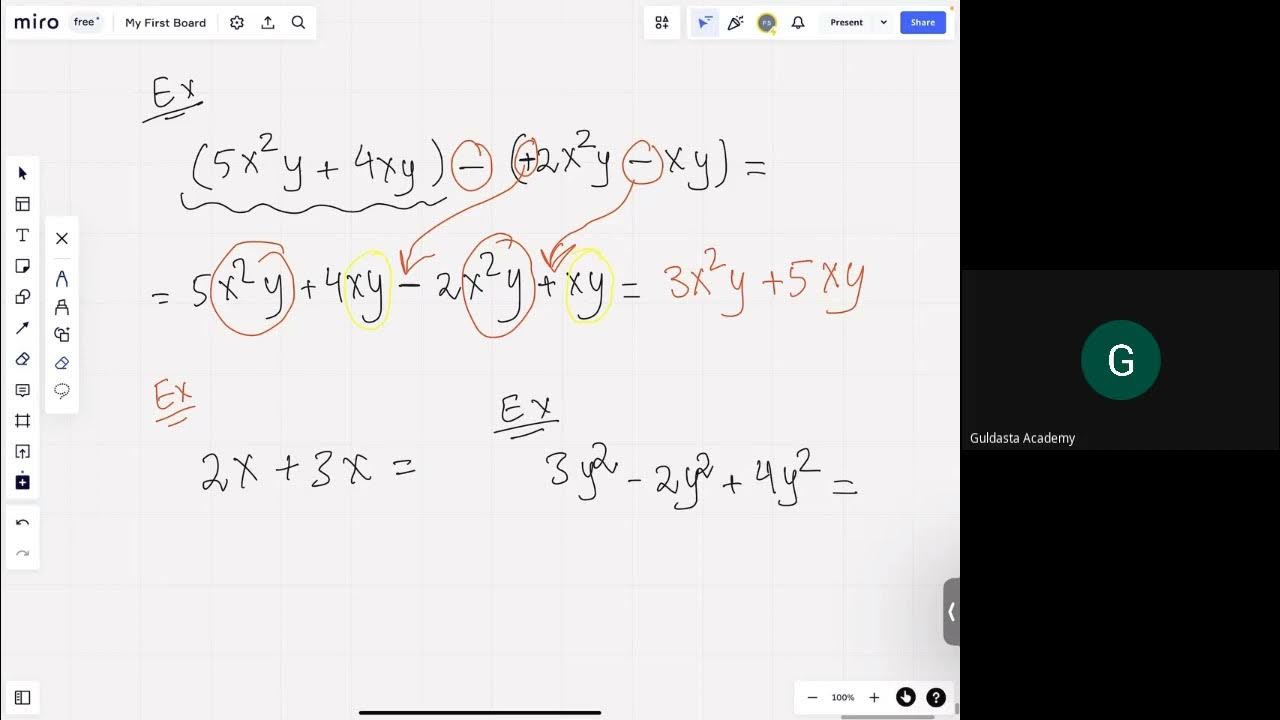 miro free My First Board
Present Share
Ex
(5x²y + 4xy) − (+2x²y − xy) =
= 5x²y + 4xy − 2x²y + xy = 3x²y + 5xy
Ex
Ex
2x + 3x =
3y² − 2y² + 4y² =
G
Guldasta Academy
− 100% + ?